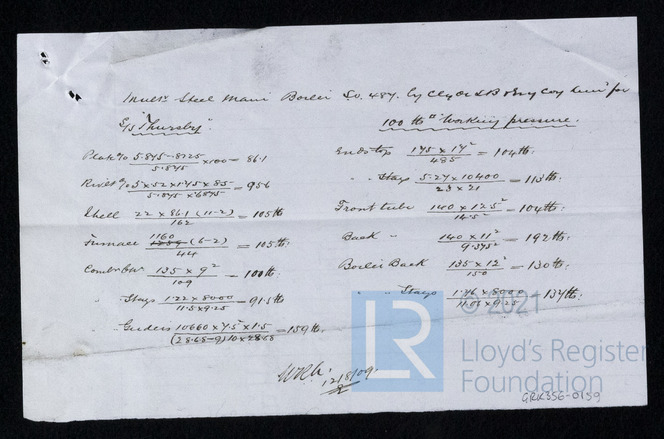 Mult. Steel Main Boiler No. 487. by Clyde S.B & Eng Coy Lim for
S/S "Thursby".
100 lb □" working pressure.
Plate % 5.875 - .8125 / 5.875 × 100 = 86.1
Rivet % 5 × .52 × 1.75 × 85 / 5.875 × .6875 = 95.6
Shell 22 × 86.1 (11-2) / 162 = 105 lb
Furnace 1160 (6-2) / 44 = 105 lb.
Comb: Chr 135 × 9² / 109 = 100 lb
" Stays 1.22 × 8000 / 11.5 × 9.25 = 91.5 lb
Girders 10660 × 7.5² × 1.5 / (28.68-9) 10 × 28.68 = 159 lb.
Ends top 175 × 17² / 485 = 104 lb.
" Stays 5.27 × 10400 / 23 × 21 = 113 lb.
Front tube 140 × 12.5² / 14.5² = 104 lb.
Back " 140 × 11² / 9.375² = 192 lb.
Boiler Back 135 × 12² / 150 = 130 lb.
" " Stays 1.76 × 8000 / 11.06 × 9.25 = 137 lb.
12/8/09.
© 2021
LR
Lloyd's Register
Foundation
GRK356-0159